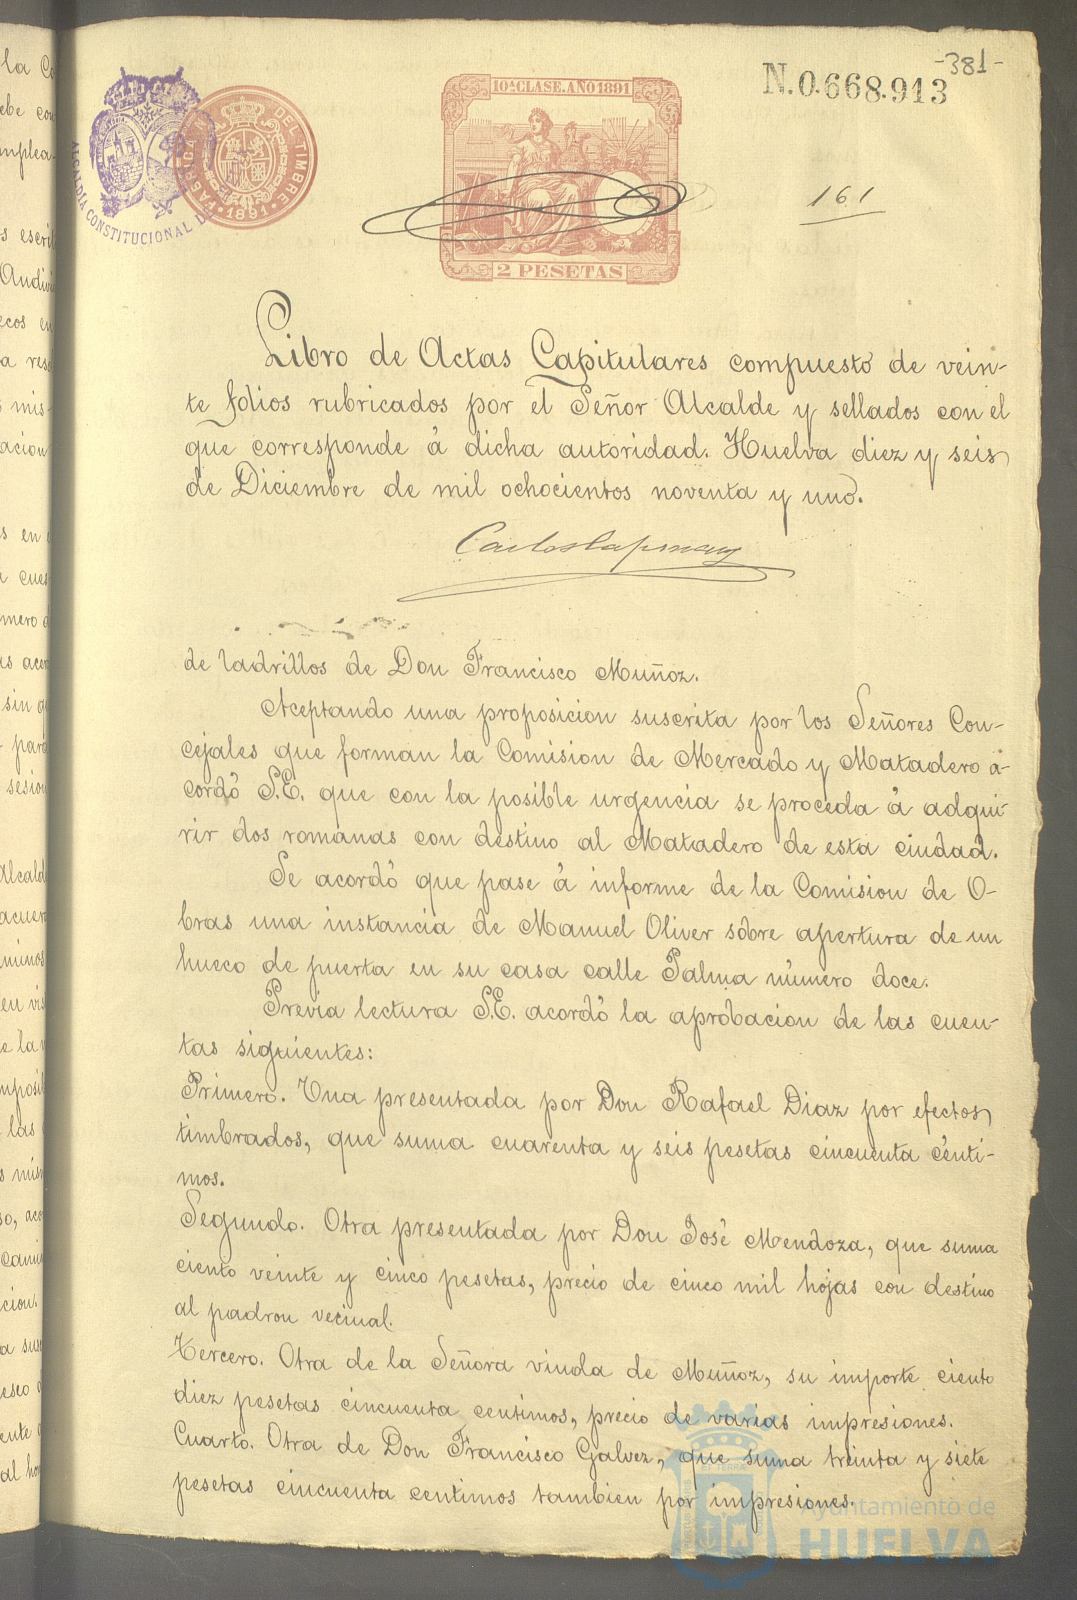 -381-
N.0.668.913
10ª CLASE. AÑO 1891
FABRICA NAL DEL TIMBRE
1891
ALCALDIA CONSTITUCIONAL
161
2 PESETAS
Libro de Actas Capitulares compuesto de vein-
te folios rubricados por el Señor Alcalde y sellados con el
que corresponde á dicha autoridad. Huelva diez y seis
de Diciembre de mil ochocientos noventa y uno.
de ladrillos de Don Francisco Muñoz.
Aceptando una proposicion suscrita por los Señores Con-
cejales que forman la Comision de Mercado y Matadero a-
cordó S.E. que con la posible urgencia se proceda á adqui-
rir dos romanas con destino al Matadero de esta ciudad.
Se acordó que pase á informe de la Comision de O-
bras una instancia de Manuel Oliver sobre apertura de un
hueco de puerta en su casa calle Palma número doce.
Previa lectura S.E. acordó la aprobacion de las cuen-
tas siguientes:
Primero. Una presentada por Don Rafael Diaz por efectos
timbrados, que suma cuarenta y seis pesetas cincuenta cénti-
mos.
Segundo. Otra presentada por Don José Mendoza, que suma
ciento veinte y cinco pesetas, precio de cinco mil hojas con destino
al padron vecinal.
Tercero. Otra de la Señora viuda de Muñoz, su importe ciento
diez pesetas cincuenta centimos, precio de varias impresiones.
Cuarto. Otra de Don Francisco Galvez, que suma treinta y siete
pesetas cincuenta centimos tambien por impresiones.
Ayuntamiento de
HUELVA